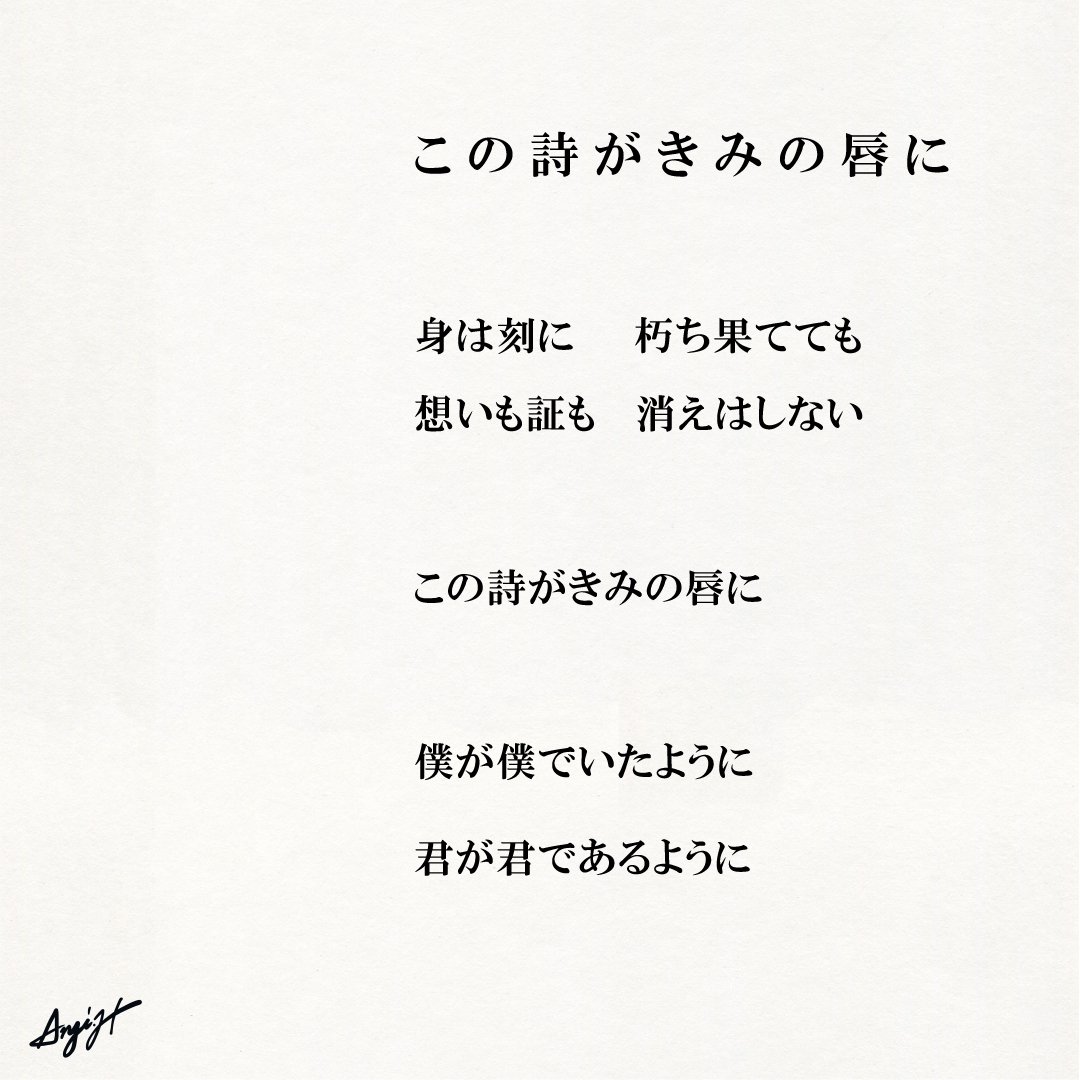 この詩がきみの唇に
身は刻に　朽ち果てても
想いも証も　消えはしない
この詩がきみの唇に
僕が僕でいたように
君が君であるように